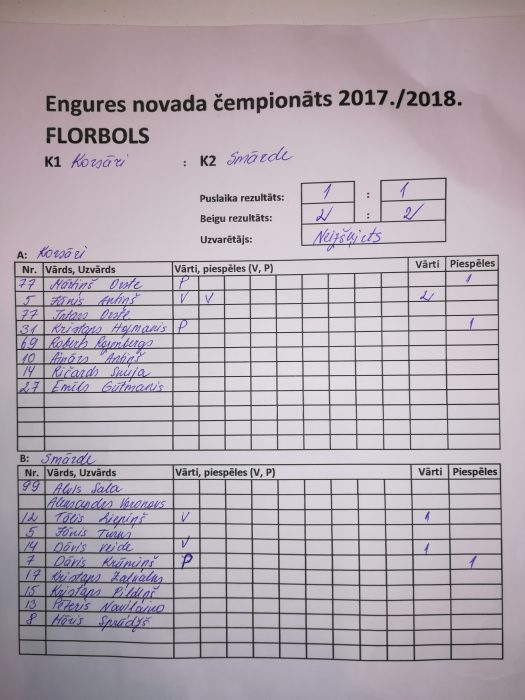 Engures novada čempionāts 2017./2018.
FLORBOLS
K1 Korsāri : K2 Smārde
Puslaika rezultāts: 1 : 1
Beigu rezultāts: 2 : 2
Uzvarētājs: Neizšķirts
A: Korsāri
Nr. Vārds, Uzvārds Vārti, piespēles (V, P) Vārti Piespēles
77 Mārtiņš Oste P 1
5 Jānis Antiņš V V 2
77 Intars Oste
31 Kristaps Hermanis P 1
69 Roberts Rozenbergs
10 Ainārs Antiņš
14 Ričards
27 Emīls Gūtmanis
B: Smārde
Nr. Vārds, Uzvārds Vārti, piespēles (V, P) Vārti Piespēles
99 Alvis Sala
Aleksandrs Voronovs
12 Tālis Liepiņš V 1
5 Jānis Turks
14 Dāvis Veide V 1
7 Dāvis Krūmiņš P 1
17 Kristaps
15 Kristaps
13 Pēteris
8 Māris Sprūdžs